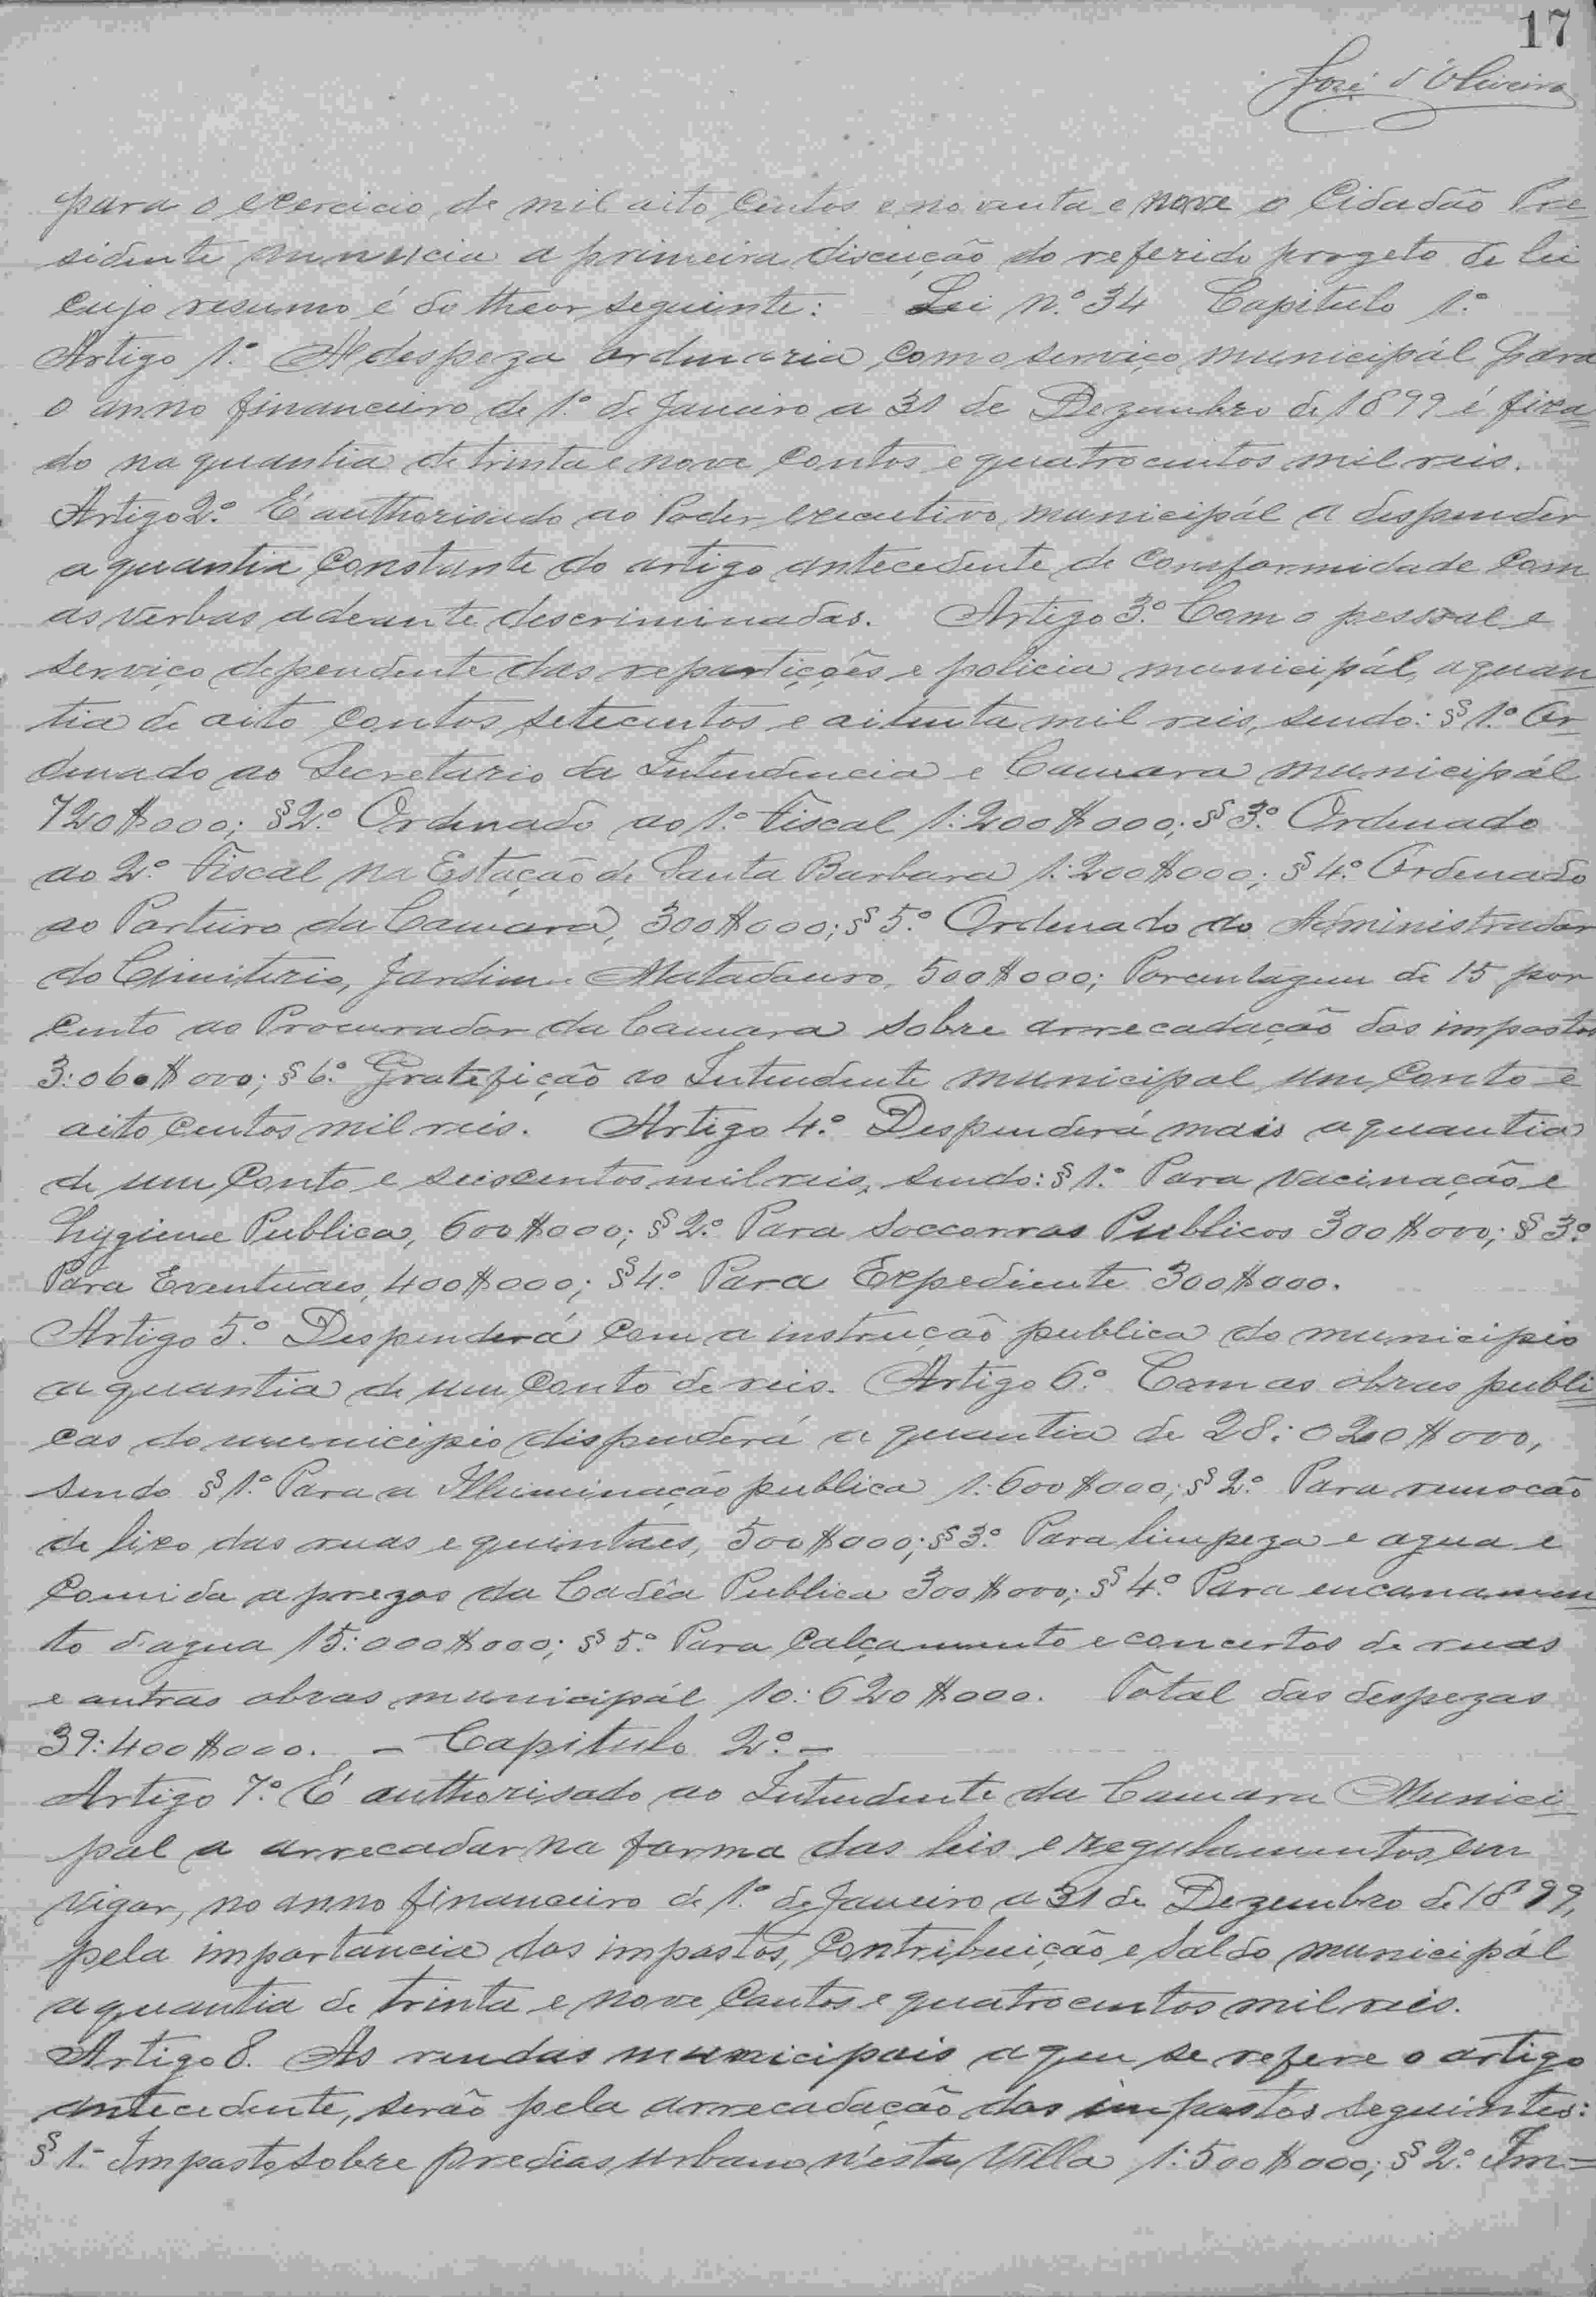 17
José d'Oliveira
para o exercicio de mil oito centos e noventa e nove o Cidadão Pre
sidente annuncia a primeira discução do referido progeto de lei
cujo resumo é do theor seguinte: Lei n.º 34 Capitulo 1.º
Artigo 1.º A despeza ordinaria com o serviço municipál para
o anno financeiro de 1.º de Janeiro a 31 de Dezembro de 1899 é fixa
do na quantia de trinta e nove contos e quatrocentos mil reis.
Artigo 2.º É authorisado ao Poder executivo municipál a despender
a quantia constante do artigo antecedente de conformidade com
as verbas adeante descriminadas. Artigo 3.º Com o pessoal e
serviço dependente das repartições e policia municipál, a quan
tia de oito contos setecentos e oitenta mil reis, sendo: § 1.º Or
denado ao Secretario da Intendencia e Camara municipál
720$000; § 2.º Ordenado ao 1.º Fiscal 1:200$000; § 3.º Ordenado
ao 2.º Fiscal na Estação de Santa Barbara 1:200$000; § 4.º Ordenado
ao Porteiro da Camara, 300$000; § 5.º Ordenado do Administrador
do Cimiterio, Jardim e Matadouro, 500$000; Porcentagem de 15 por
cento ao Procurador da Camara sobre arrecadação dos impostos
3:060$000; § 6.º Gratifição ao Intendente municipal um conto e
oito centos mil reis. Artigo 4.º Despenderá mais a quantia
de um conto e seiscentos mil reis, sendo: § 1.º Para vacinação e
hygiene Publica, 600$000; § 2.º Para soccorros Publicos 300$000; § 3.º
Para Eventuaes, 400$000; § 4.º Para Expediente 300$000.
Artigo 5.º Despenderá com a instrução publica do municipio
a quantia de um conto de reis. Artigo 6.º Com as obras publi
cas do municipio dispenderá a quantia de 28:020$000,
sendo § 1.º Para a Illuminação publica 1:600$000; § 2.º Para remocão
de lixo das ruas e quintaes, 500$000; § 3.º Para limpeza e agua e
comida a prezos da Cadêa Publica 300$000; § 4.º Para encanamen
to d'agua 15:000$000; § 5.º Para calçamento e concertos de ruas
e outras obras municipál 10:620$000. Total das despezas
39:400$000. – Capitulo 2.º –
Artigo 7.º É authorisado ao Intendente da Camara Munici
pal a arrecadar na forma das leis e regulamentos em
vigor, no anno financeiro de 1.º de Janeiro a 31 de Dezembro de 1899,
pela importancia dos impostos, contribuição e saldo municipál
a quantia de trinta e nove contos e quatrocentos mil reis.
Artigo 8. As rendas municipais a que se refere o artigo
antecedente, serão pela arrecadação dos impostos seguintes:
§ 1.º Imposto sobre predios urbano n'esta Villa 1:500$000; § 2.º Im=